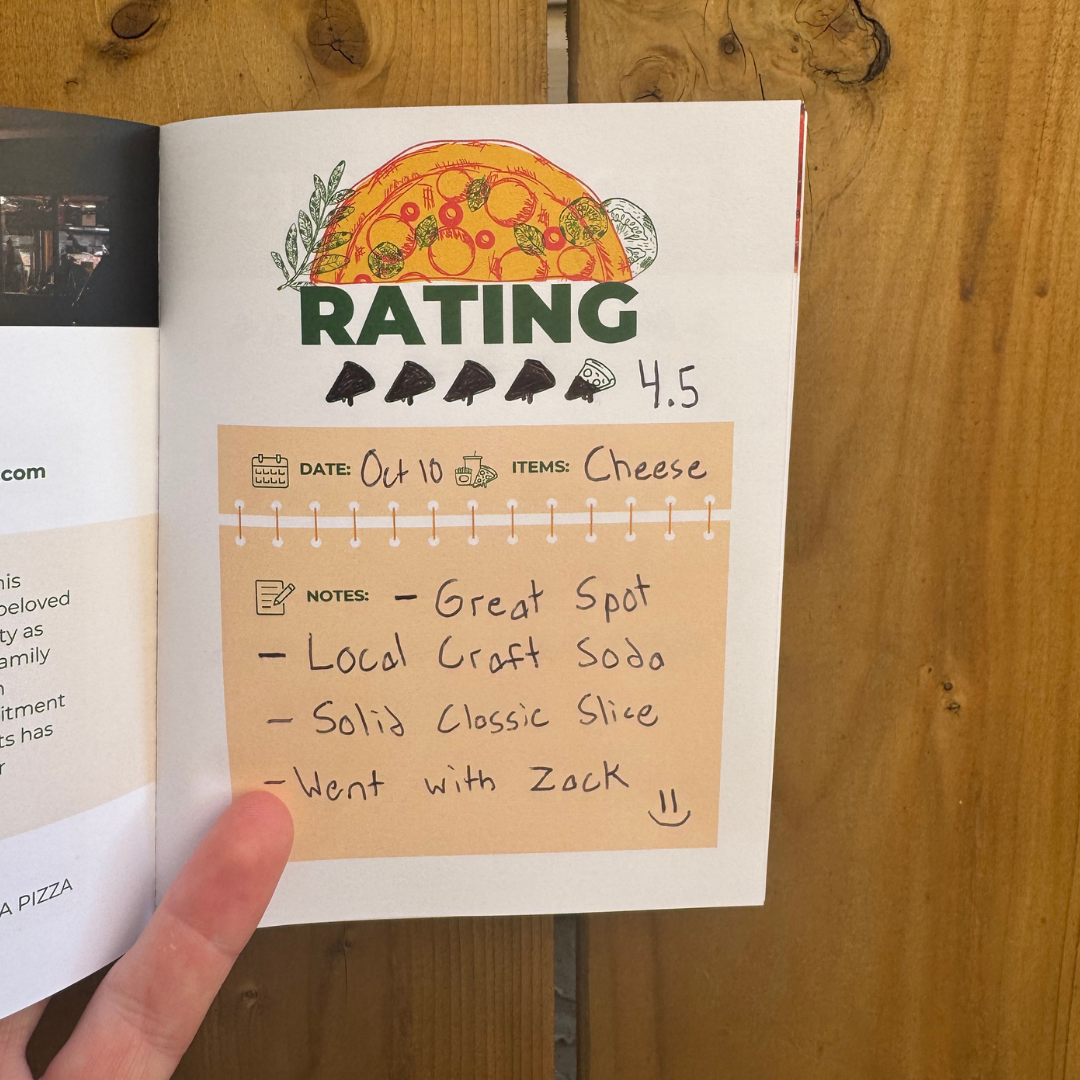 .com
his
beloved
ty as
amily
n
itment
ts has
r
A PIZZA
RATING
4.5
DATE: Oct 10 ITEMS: Cheese
NOTES: - Great Spot
- Local Craft Soda
- Solid Classic Slice
- Went with Zack